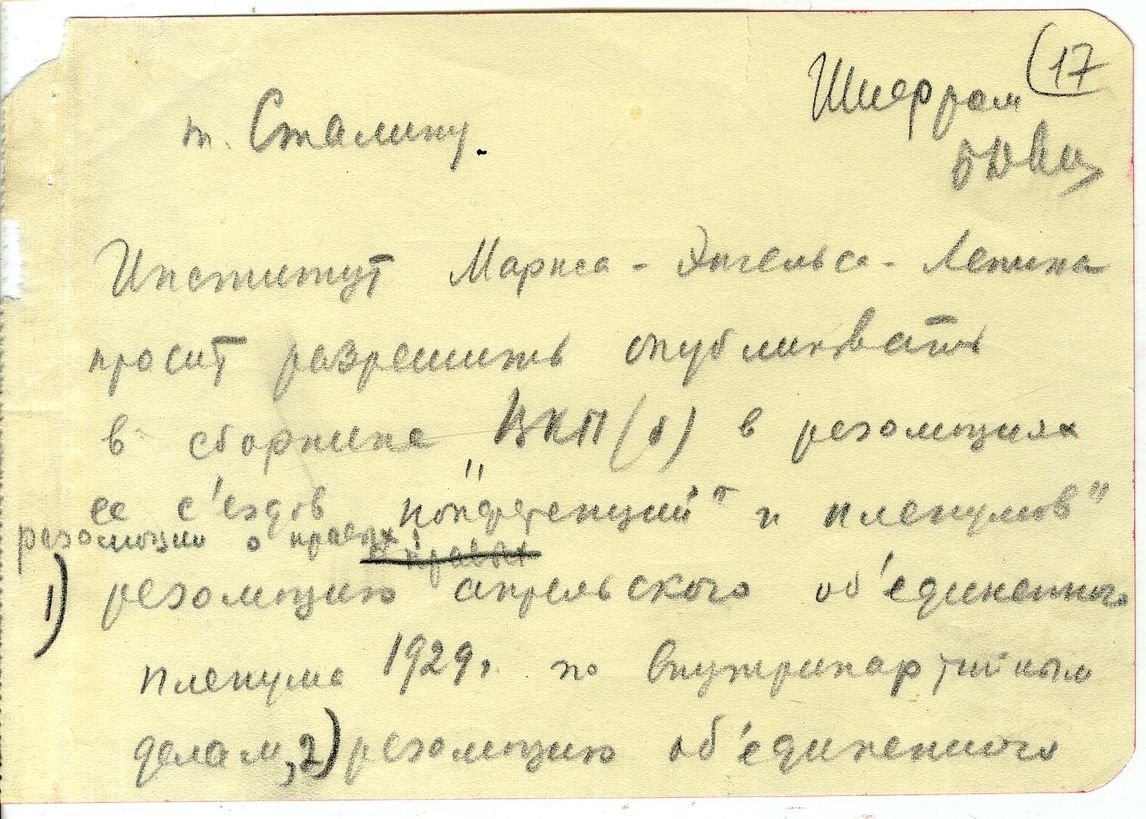 17
Шифром
т. Сталину.
Институт Маркса - Энгельса - Ленина
просит разрешить опубликовать
в сборнике ВКП(б) в резолюциях
ее с'ездов "конференций" и пленумов"
резолюции о правых:
о правых
1) резолюцию апрельского об'единенного
пленума 1929г. по внутрипартийным
делам, 2) резолюцию об'единенного